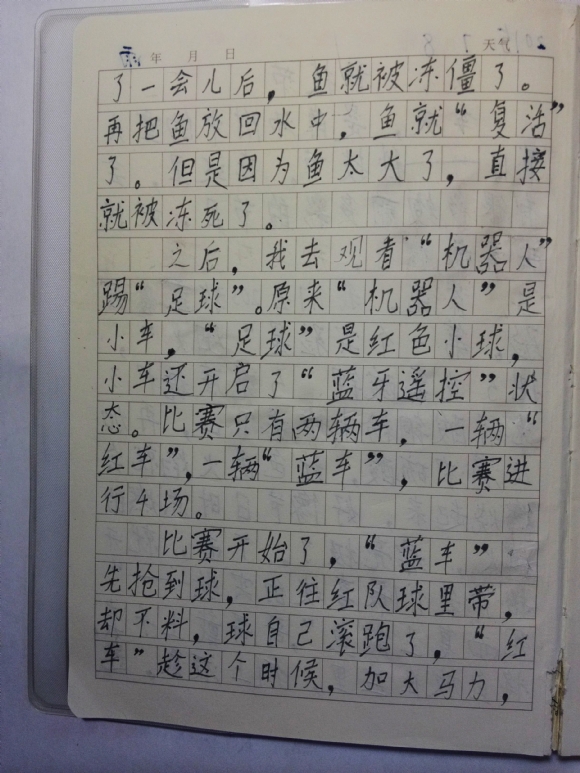 年 月 日 天气
了一会儿后，鱼就被冻僵了。
再把鱼放回水中，鱼就“复活”
了。但是因为鱼太大了，直接
就被冻死了。
之后，我去观看“机器人”
踢“足球”。原来“机器人”是
小车，“足球”是红色小球，
小车还开启了“蓝牙遥控”状
态。比赛只有两辆车，一辆“
红车”，一辆“蓝车”，比赛进
行4场。
比赛开始了，“蓝车”
先抢到球，正往红队球里带，
却不料，球自己滚跑了，“红
车”趁这个时候，加大马力，